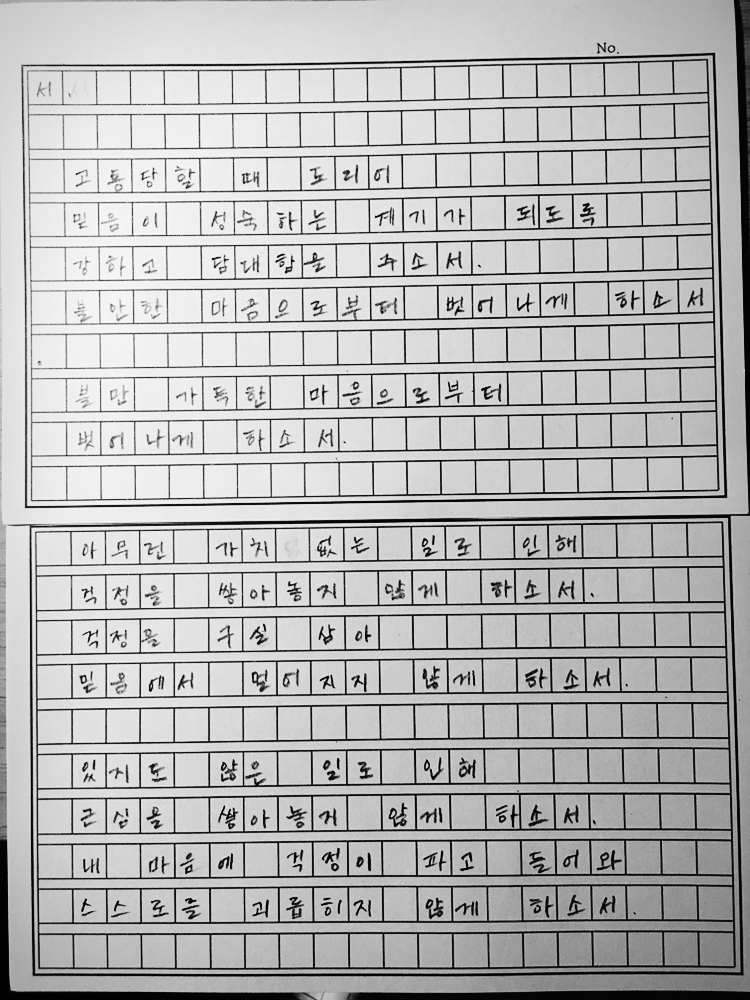 No.
서.
고통당할 때 도리어
믿음이 성숙하는 계기가 되도록
강하고 담대함을 주소서.
불안한 마음으로부터 벗어나게 하소서
.
불만 가득한 마음으로부터
벗어나게 하소서.
아무런 가치 없는 일로 인해
걱정을 쌓아놓지 않게 하소서.
걱정을 구실 삼아
믿음에서 멀어지지 않게 하소서.
있지도 않은 일로 인해
근심을 쌓아놓지 않게 하소서.
내 마음에 걱정이 파고 들어와
스스로를 괴롭히지 않게 하소서.